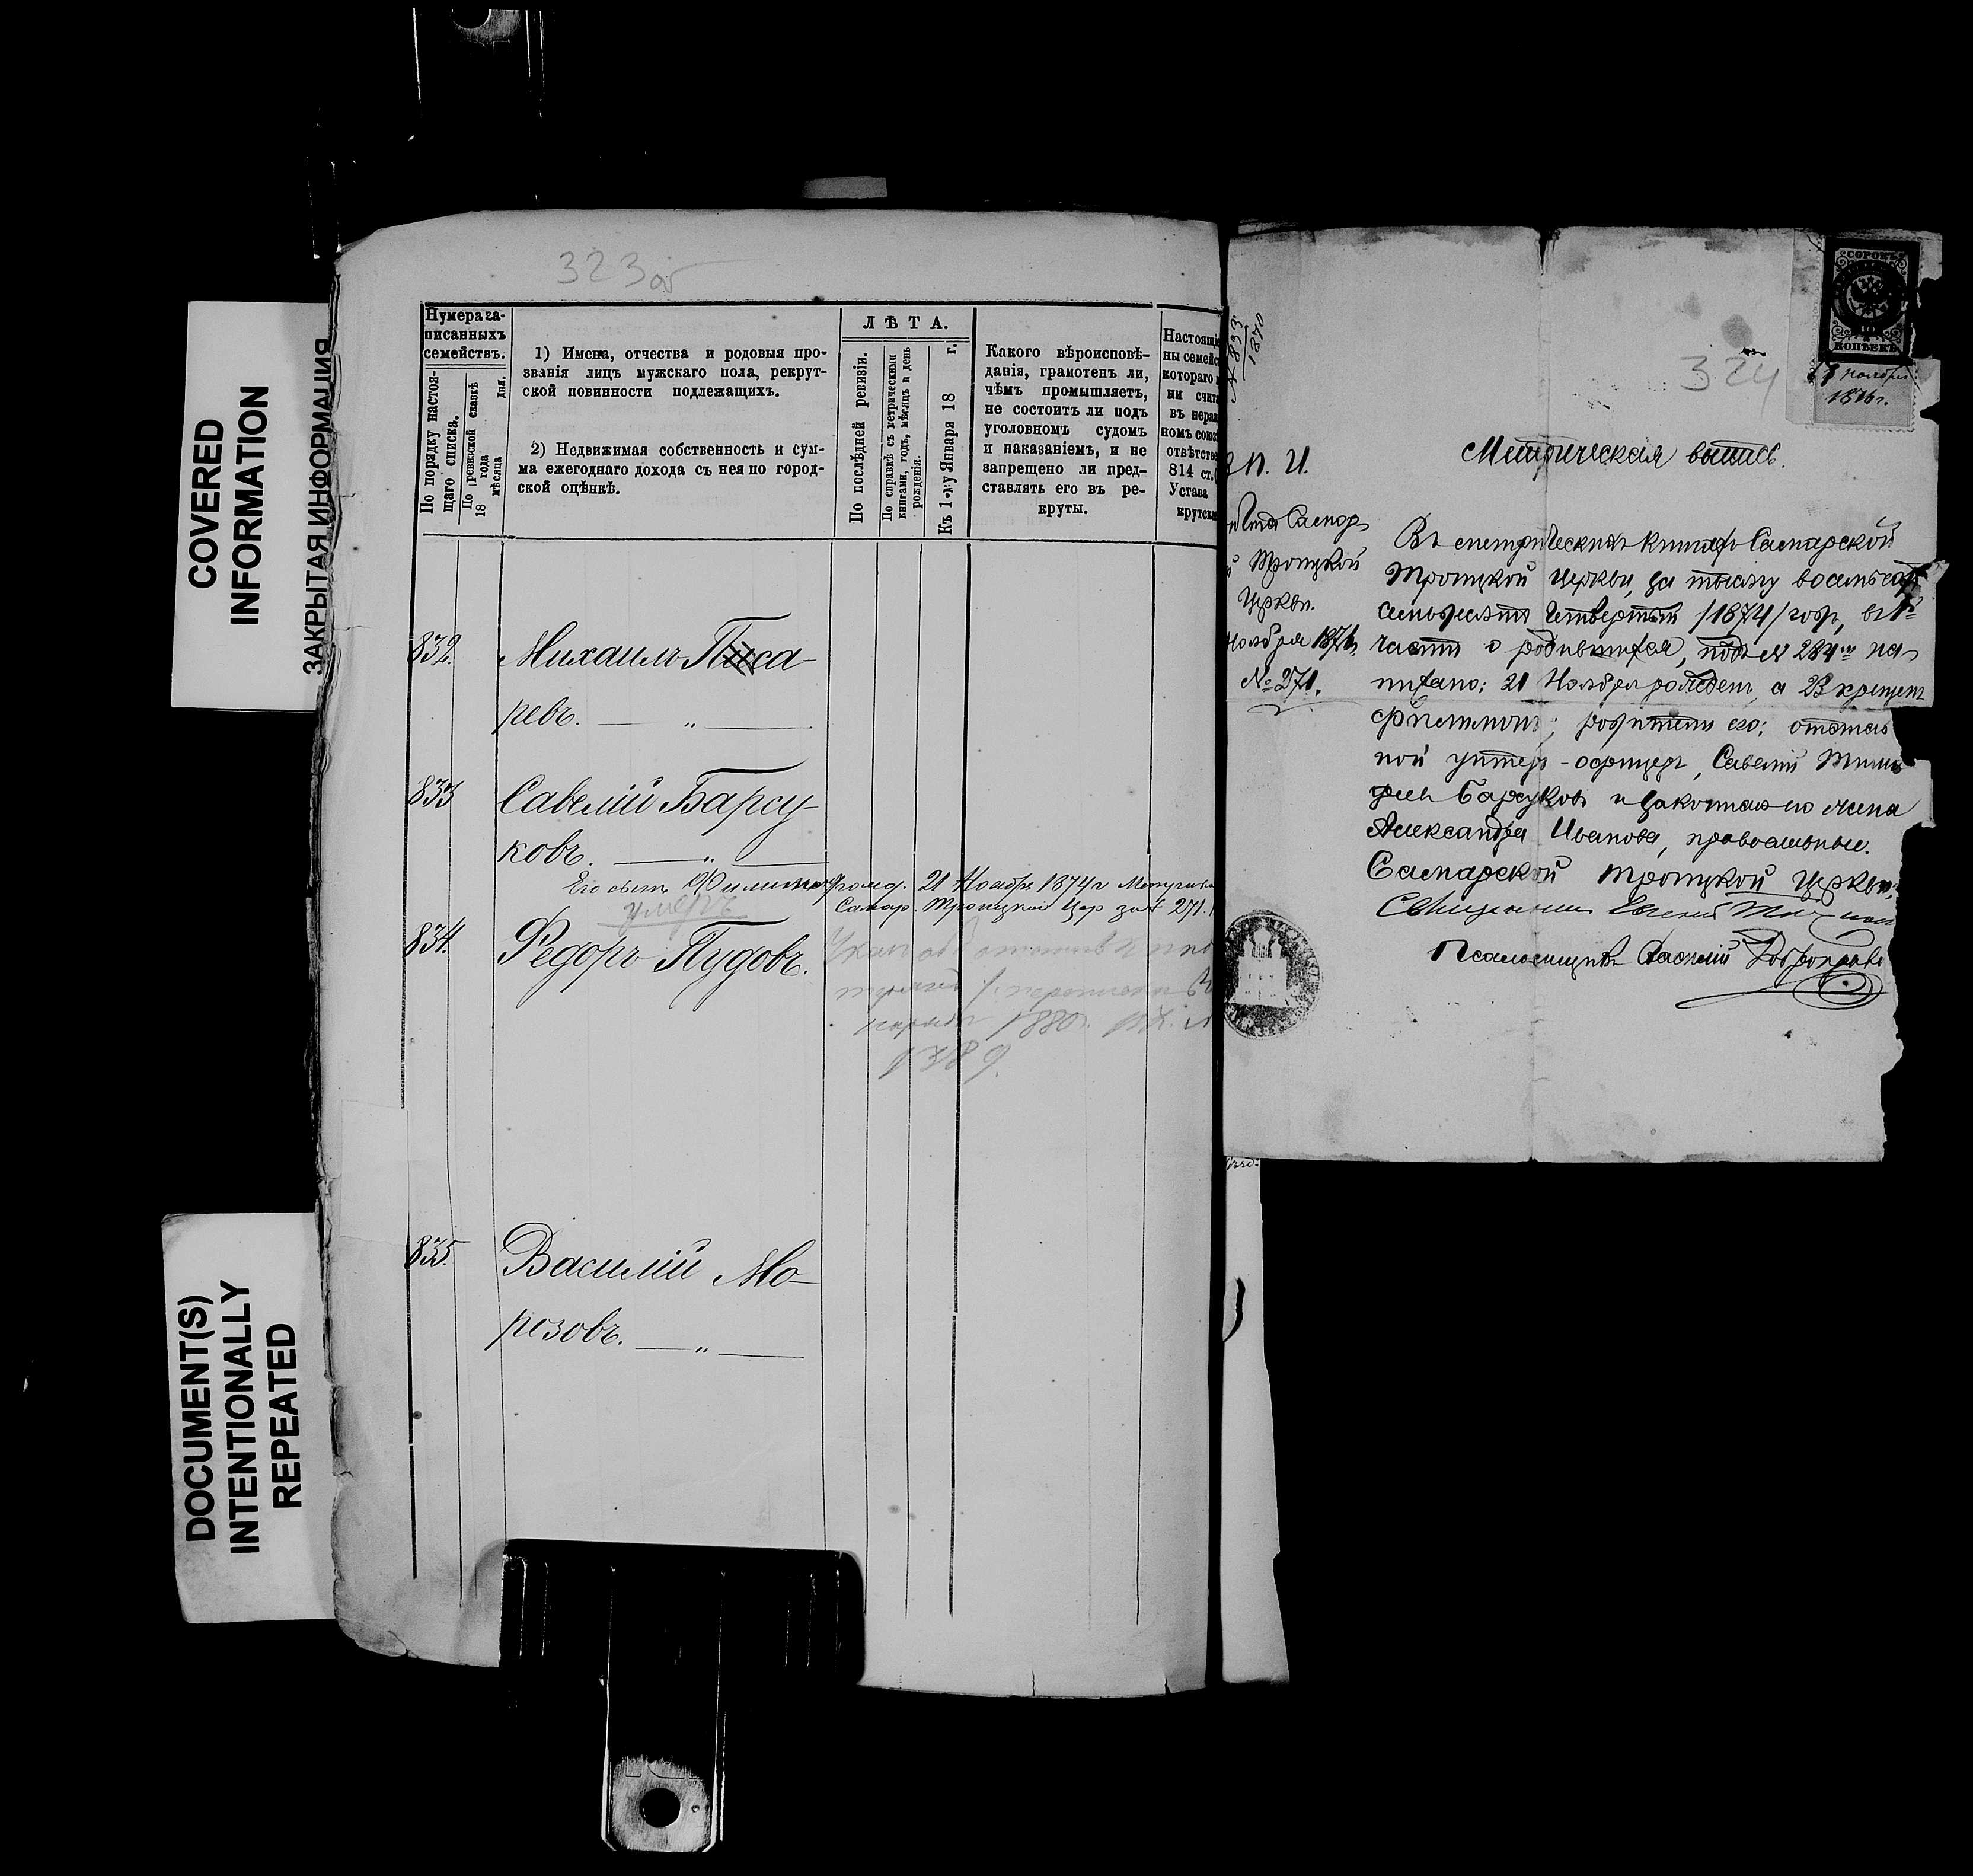 COVERED
INFORMATION
ЗАКРЫТАЯ ИНФОРМАЦИЯ
DOCUMENT(S)
INTENTIONALLY
REPEATED
323об
Нумера за-
писанныхъ
семействъ.
По порядку настоя-
щаго списка.
По ревизской сказкѣ
18 года
мѣсяца дня.
1) Имена, отчества и родовыя про-
званія лицъ мужскаго пола, рекрут-
ской повинности подлежащихъ.
2) Недвижимая собственность и сум-
ма ежегоднаго дохода съ нея по город-
ской оцѣнкѣ.
ЛѢТА.
По послѣдней ревизіи.
По справкѣ съ метрическими
книгами, годъ, мѣсяцъ и день
рожденія.
Къ 1-му Января 18 г.
Какого вѣроисповѣ-
данія, грамотенъ ли,
чѣмъ промышляетъ,
не состоитъ ли подъ
уголовномъ судомъ
и наказаніемъ, и не
запрещено ли пред-
ставлять его въ ре-
круты.
Настоящі
ны семейс
котораго
ни счит
въ нераз
номъ союз
отвѣтстве
814 ст.
Устава
крутска
832. Михаилъ Писа-
ревъ. — „ —
833 Савелій Барсу-
ковъ. — „ —
Его сынъ Филимонъ ролд. 21 Ноября 1874 г
умеръ
Самар. Троицкой Цер за № 271.
834. Федоръ Пудовъ.
1880г.
835. Василій Мо-
розовъ. — „ —
№ 833
1870
324
СОРОКЪ
40
КОПѢЕКЪ
17 ноября
1876г.
М. П. И.
Самар
Троицкой
Церкви.
Ноября 1876
№ 271.
Метрическая выпись.
Въ метрическихъ книгахъ Самарской
Троицкой Церкви, за тысячу восемьсотъ
семьдесятъ четвертый /1874/ годъ, въ 1й
части о родившихся, подъ № 284мъ на-
писано: 21 Ноября рожденъ, а 23 крещенъ
Филимонъ; родители его: отстав
ной унтеръ-офицеръ, Савелій
Барсуковъ и законная его жена
Александра Иванова, православные.
Самарской Троицкой Церкви,
Священникъ Евгеній
Псаломщикъ Василій